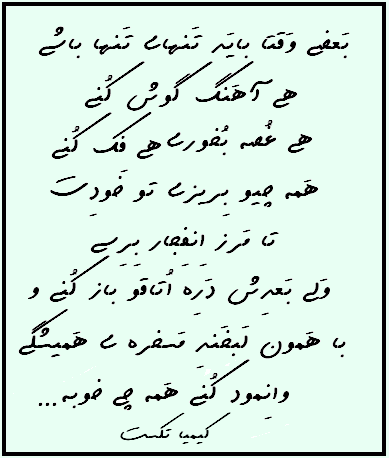 بَعضی وَقتا بایَد تَنهای تَنها باشی
هی آهَنگ گوش کُنی
هی غُصه بُخوری هی فک کُنی
هَمه چیو بِریزی تو خودِت
تا مَرز اِنفِجار بِرِسی
وَلی بَعدِش دَرِه اُتاقو باز کُنی و
با هَمون لَبخَندِ مَسخره ی هَمیشگی
وانِمود کُنی هَمه چی خوبه...
کیمیا تکست